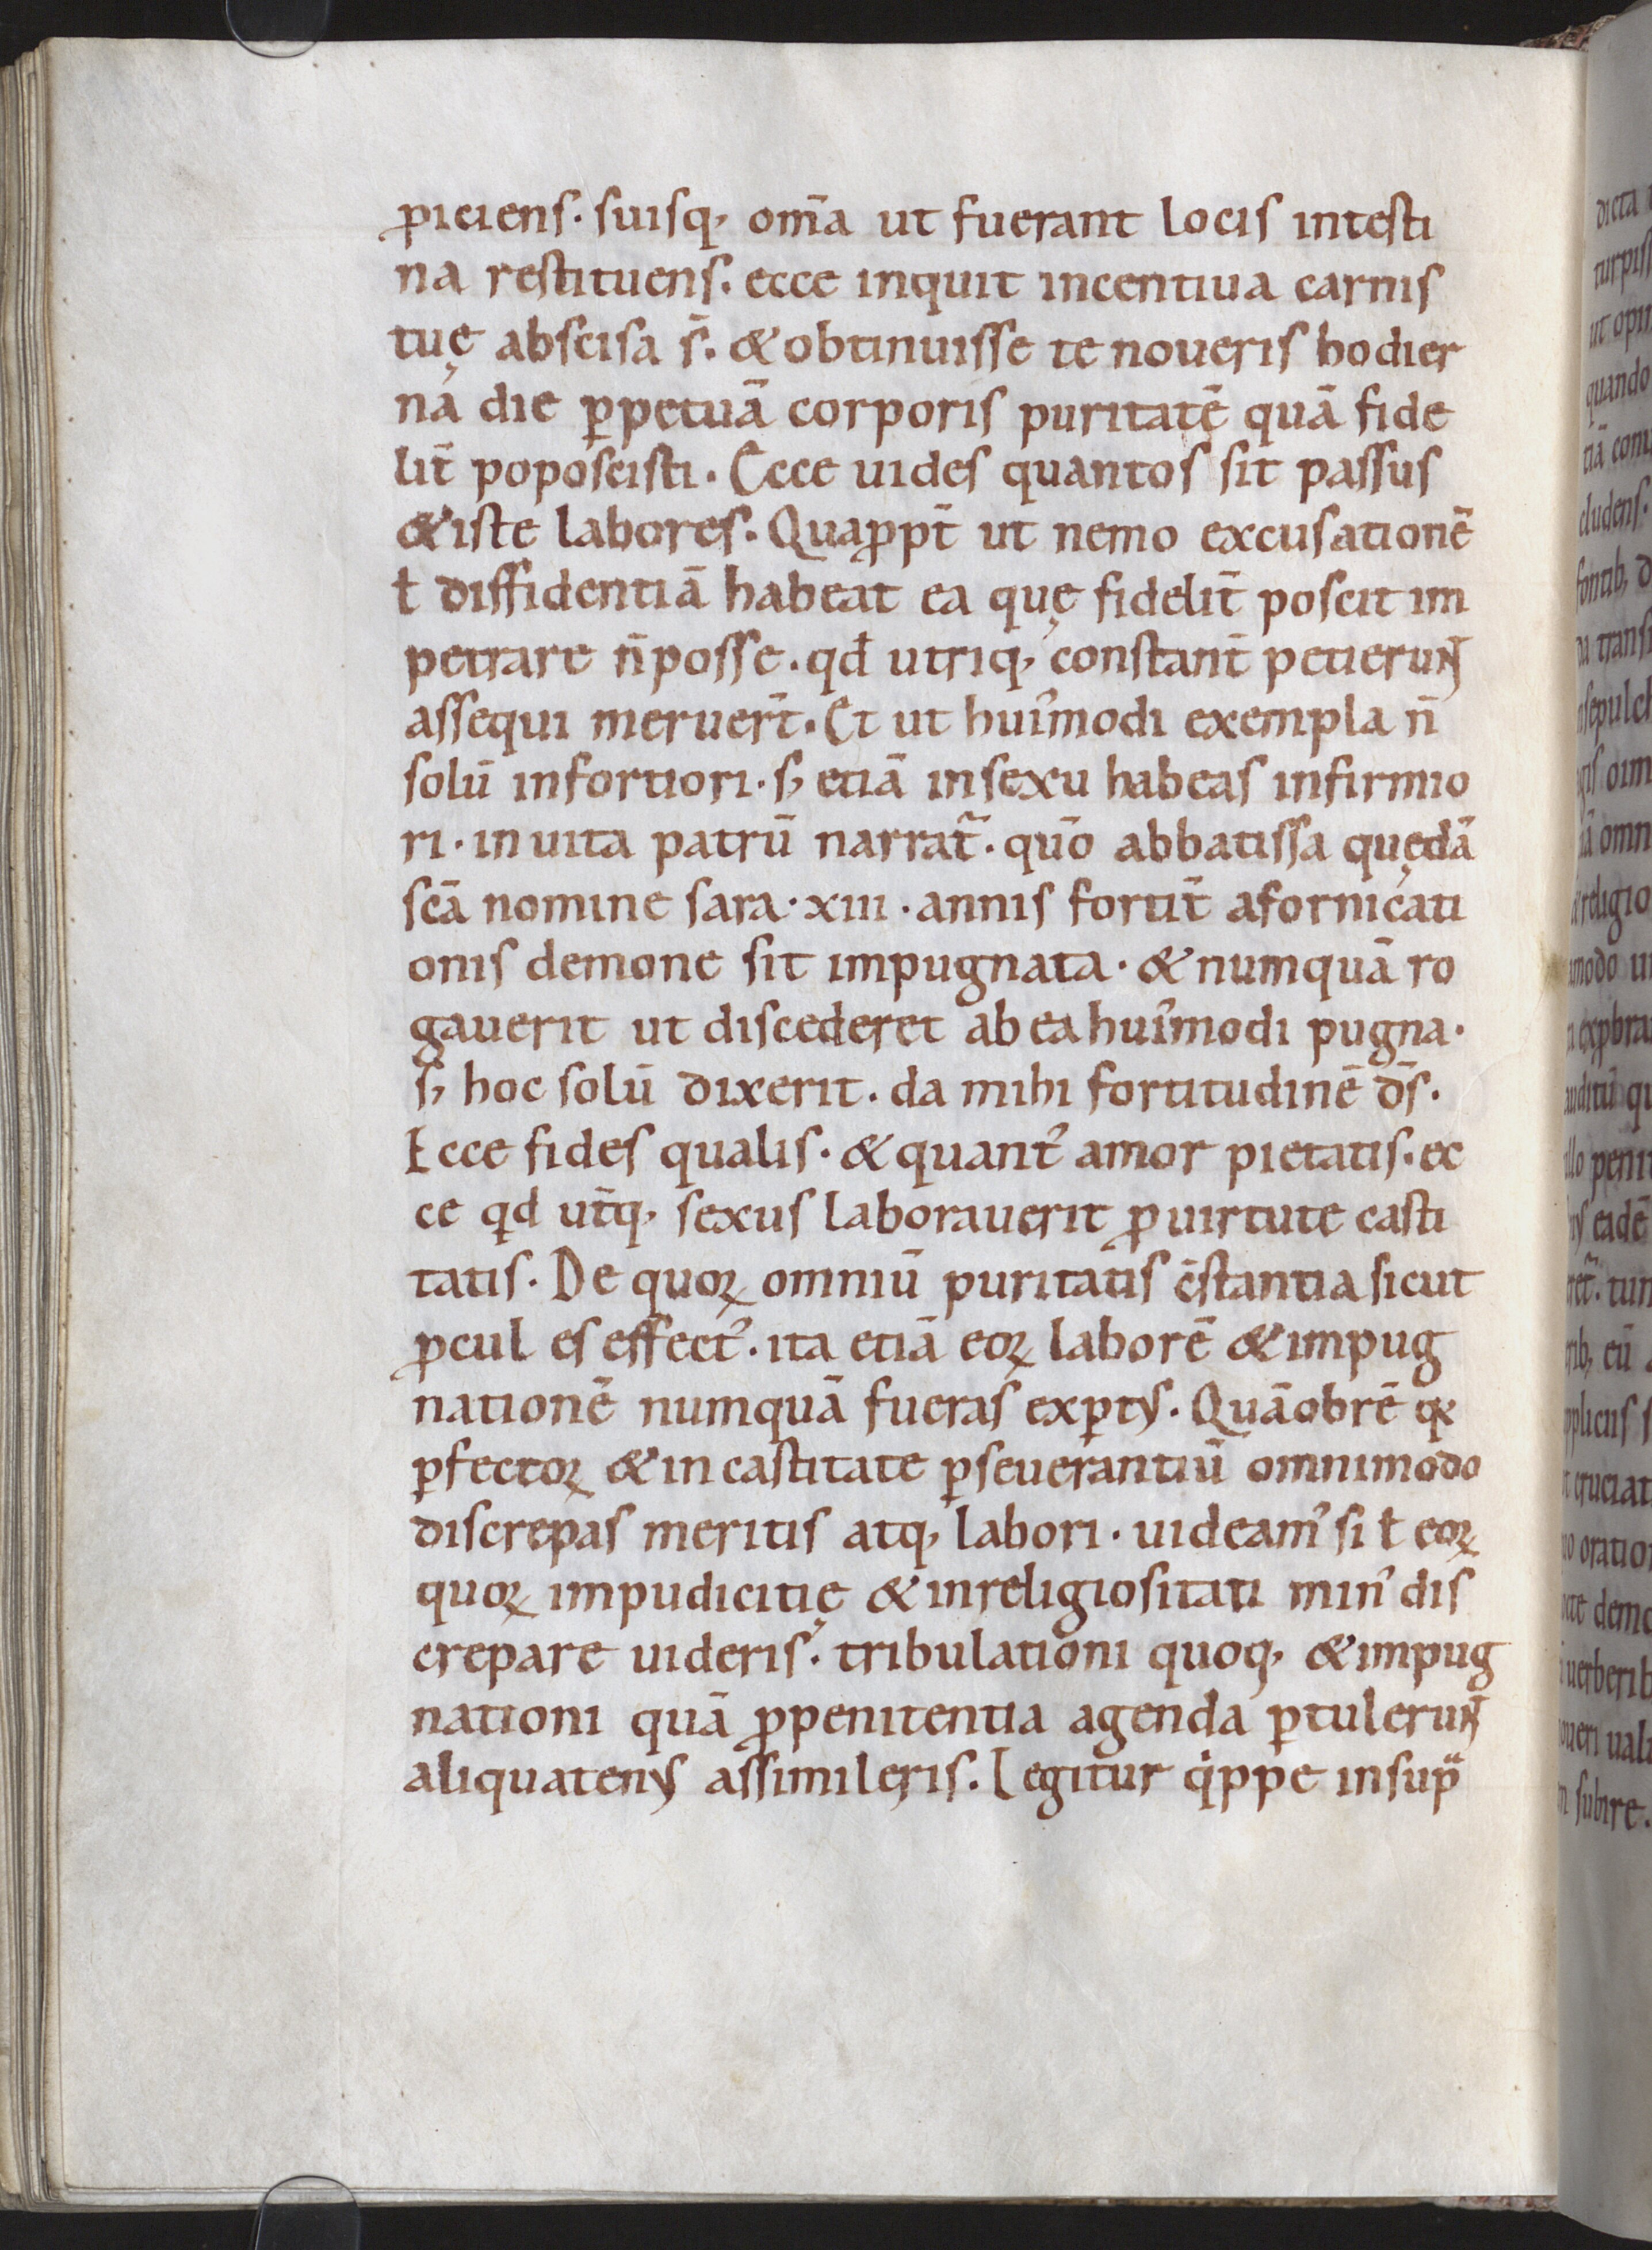 ꝓiciens. suisq, om̄a ut fuerant locis intesti
na restituens. ecce inquit incentiua carnis
tuę abscisa s̄. & obtinuisse te noueris hodier
na die ꝑpetuā corporis puritatē quā fide
lit̄ poposcisti. Ecce uides quantos sit passus
& iste labores. Quaꝓpt̄ ut nemo excusationē
ł diffidentiā habeat ea quę fidelit̄ poscit im
petrare n̄ posse. qđ utriq, constant̄ petierunt
assequi meruer̄t. Et ut hui᾽modi exempla n̄
solū in fortiori. s; etiā in sexu habeas infirmio
ri. in uita patrū narrat᷑. quō abbatissa quędā
scā nomine sara. xiii. annis fortit̄ a fornicati
onis demone sit impugnata. & numquā ro
gauerit ut discederet ab ea hui᾽modi pugna.
s; hoc solū dixerit. da mihi fortitudinē ds̄.
Ecce fides qualis. & quant᾽ amor pietatis. ec
ce qd ut̄q, sexus laborauerit ꝓ uirtute casti
tatis. De quoꝝ omniū puritatis c̄stantia sicut
ꝓcul es effect᾽. ita etiā eoꝝ laborē & impug
nationē numquā fueras exꝑtus. Quāobrē q&#x69;
ꝑfectoꝝ & in castitate ꝑseuerantiū omnimodo
discrepas meritis atq, labori. uideam᾽ si ł eoꝝ
quoꝝ impudicitię & inreligiositati min᾽ dis
crepare uideris. tribulationi quoq, & impug
nationi quā ꝓ penitentia agenda ꝑtulerunt
aliquatenus assimileris. Legitur qippe insup̄